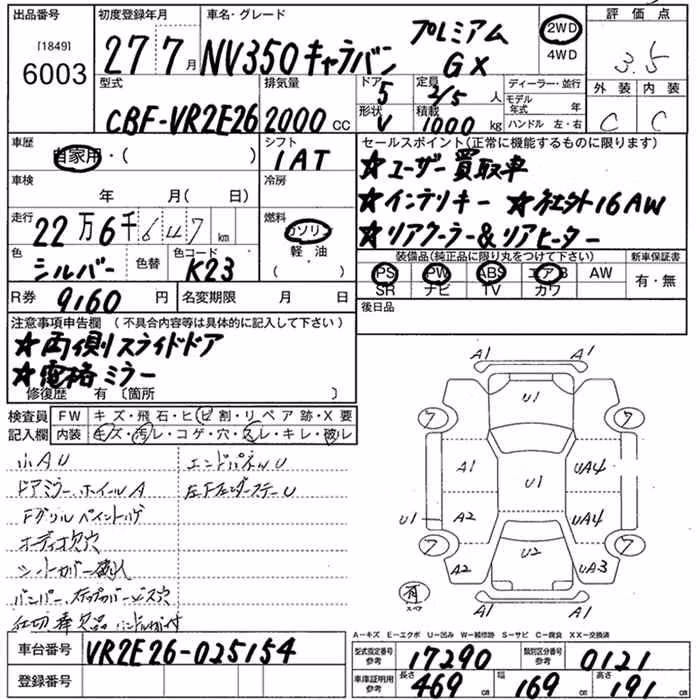 出品番号 初度登録年月 車名・グレード 評価点
[1849]
6003
27 7月 NV350キャラバン プレミアム GX
2WD
4WD
3.5
型式 排気量 ドア 定員 ディーラー・並行 外装 内装
CBF-VR2E26 2000cc 5 2/5人 モデル年式 年
形状 積載 ハンドル 左・右
V 1000kg C C
車歴 シフト セールスポイント(正常に機能するものに限ります)
自家用・( ) 1AT ★ユーザー買取車
車検 冷房
年 月( 日) ★インテリキー ★社外16AW
走行 燃料
22万6千647km ガソリン ★リアクーラー&リアヒーター
軽油
( )
色 色替 色コード 装備品(純正品に限り丸をつけて下さい) 新車保証書
シルバー K23 PS PW ABS エアB AW 有・無
SR ナビ TV カワ
R券 9160円 名変期限 月 日 後日品
注意事項申告欄 (不具合内容等は具体的に記入して下さい)
★両側スライドドア
★電格ミラー
修復歴 有 〔箇所 〕
検査員 FW キズ・飛石・ヒビ割・リペア跡・X要
記入欄 内装 キズ・汚レ・コゲ・穴・スレ・キレ・破レ
小AU エンドパネルU
ドアミラー、ホイールA 左Fフェンダーステー U
Fグリルペイントハゲ
オーディオ欠穴
シートカバー破れ
バンパー、ステップカバービス穴
A1 A1
U1
7 7
A1 U1 UA4
U1 A2 UA4
7 U2 7
A2 UA3
A1 A1
有
スペア
A−キズ E−エクボ U−凹み W−補修跡 S−サビ C−腐食 XX−交換済
車台番号 VR2E26-025154
型式指定番号 参考 17290 類別区分番号 参考 0121
登録番号
車庫証明用 参考 長さ 469cm 幅 169cm 高さ 191cm